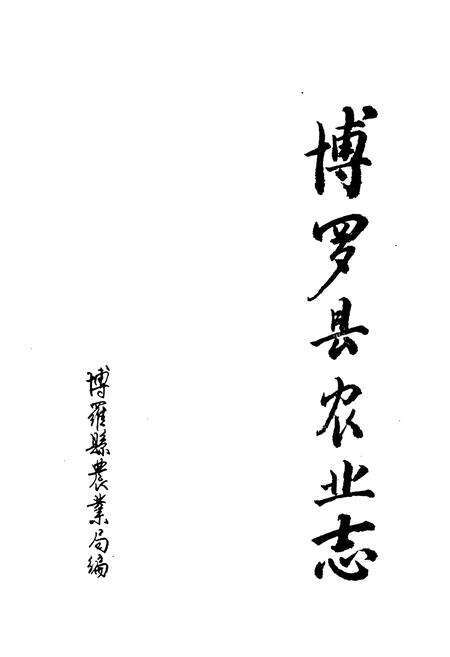 博罗县农业志
博羅縣農業局编